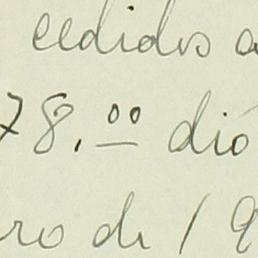 cedidos a
78.00 dió
ro de 19